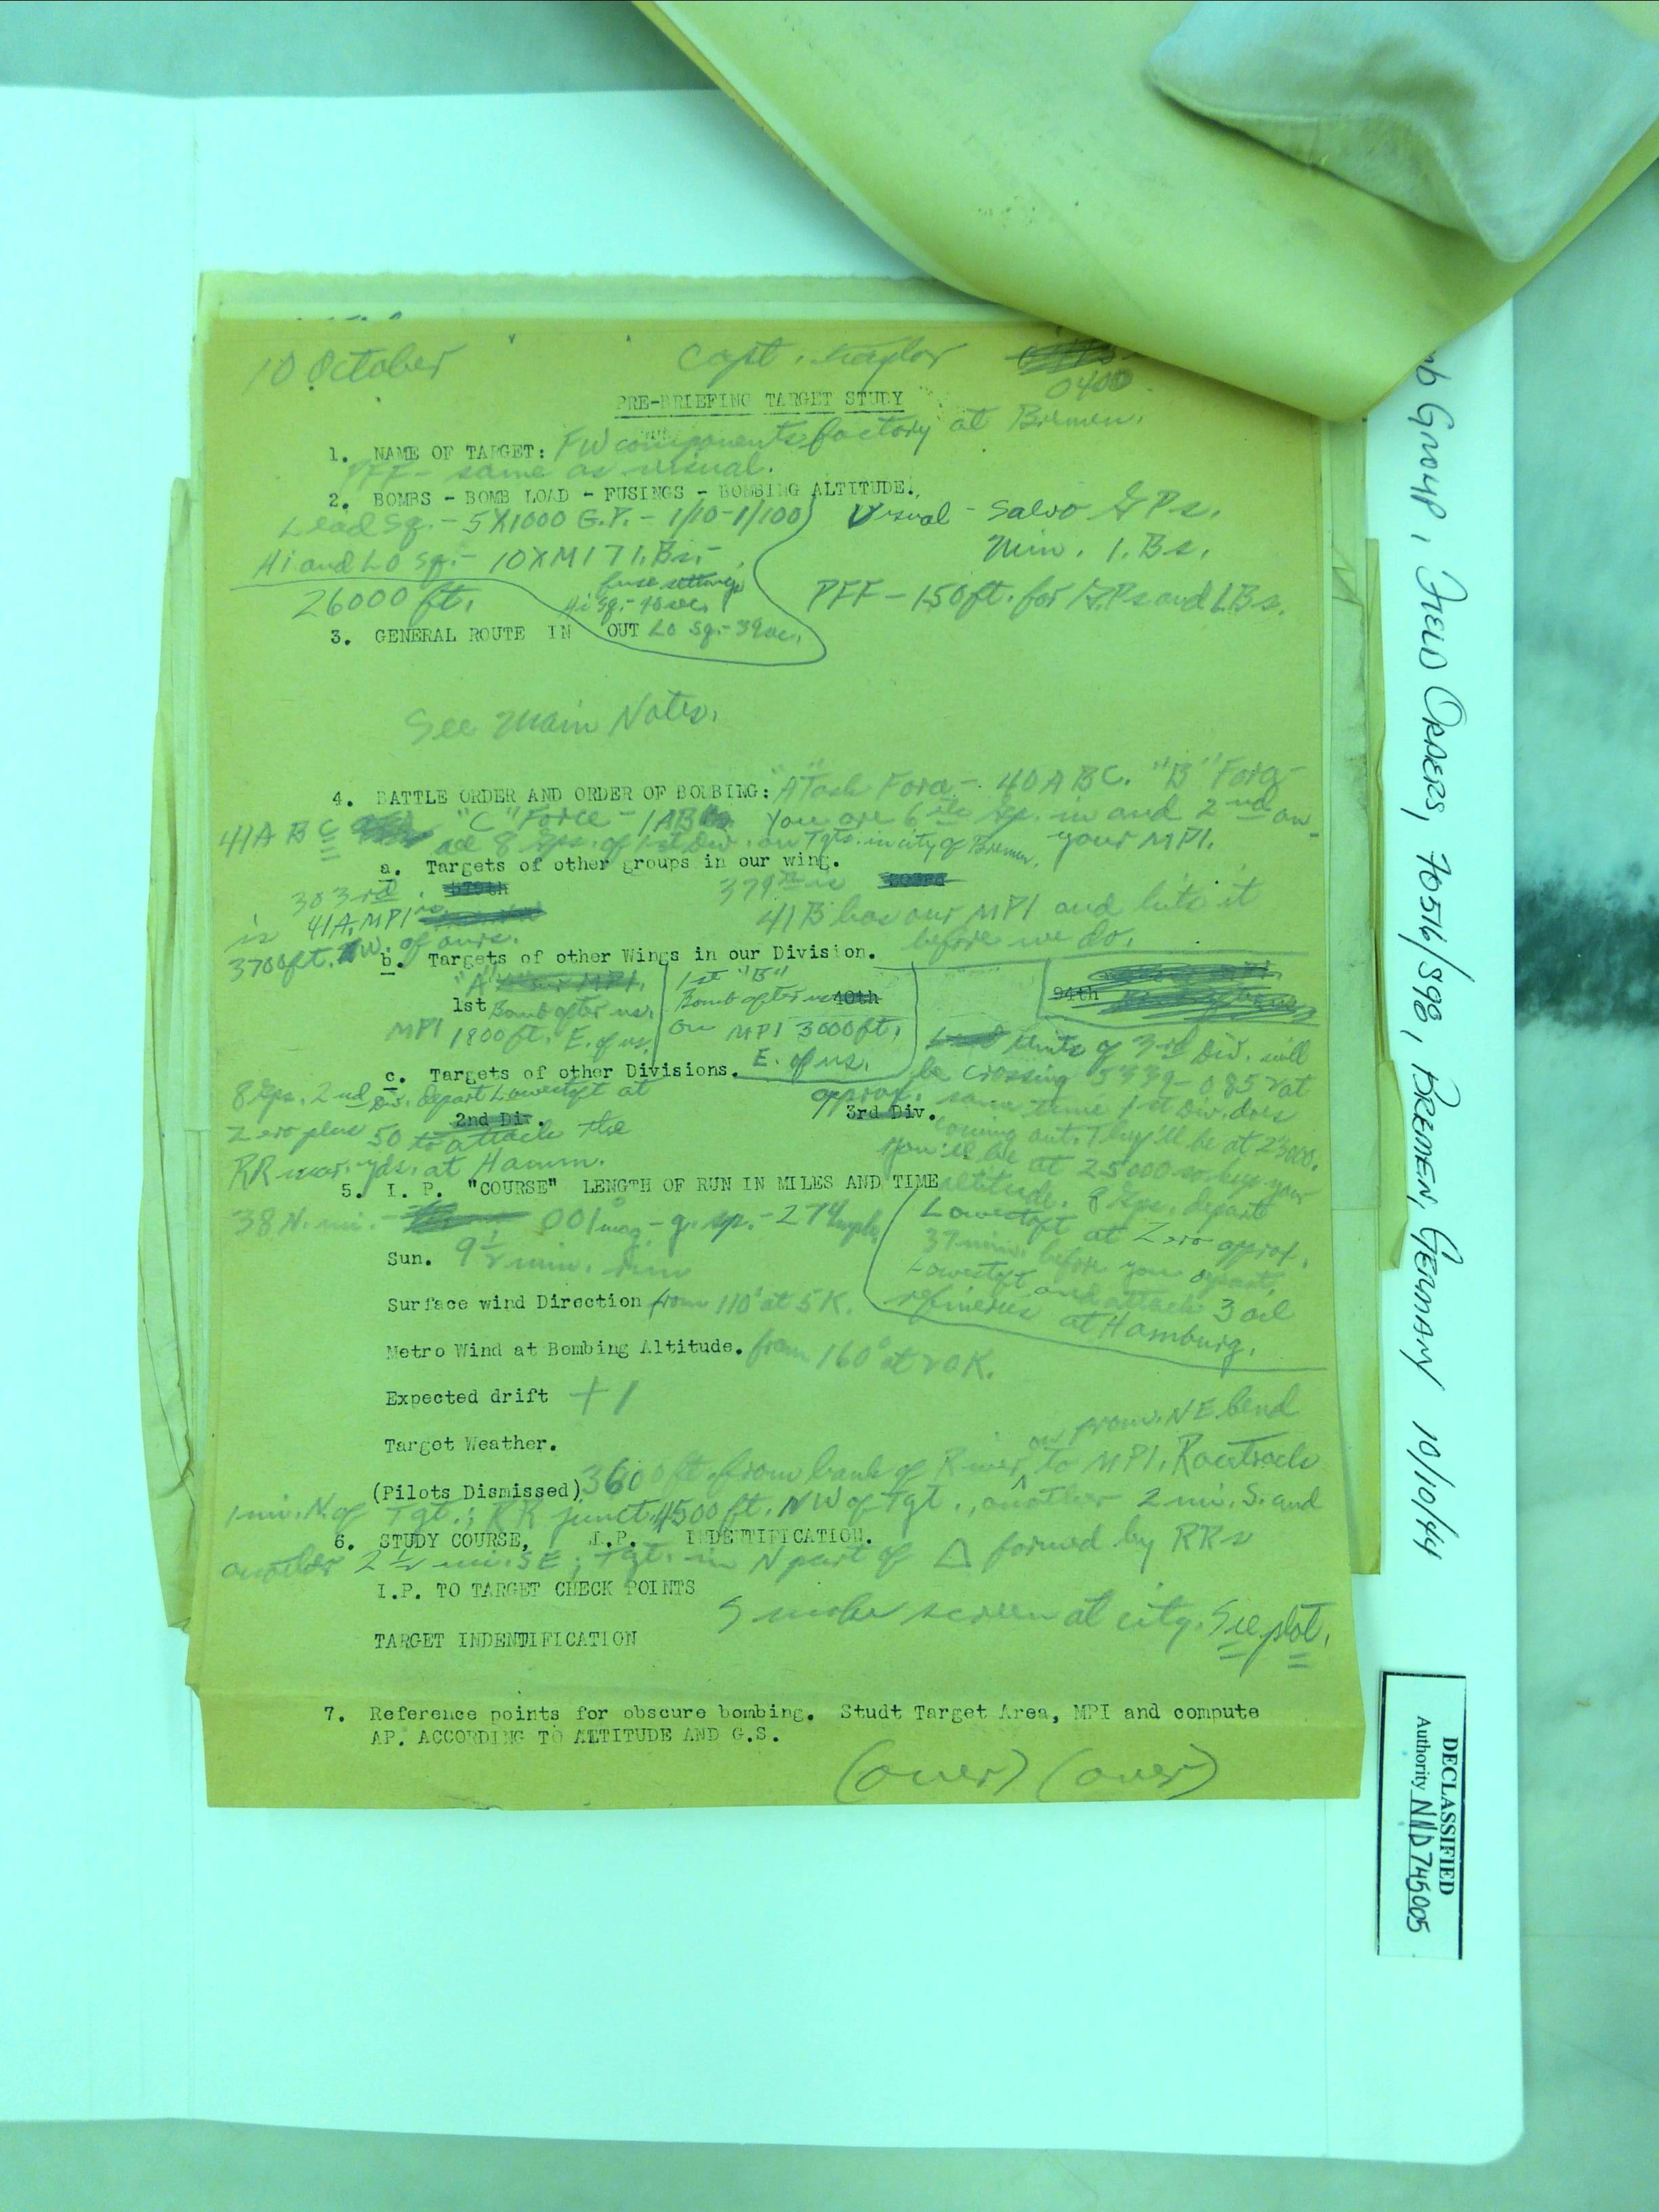 10 October Capt. Naylor
0400
PRE-BRIEFING TARGET STUDY
1. NAME OF TARGET: FW components factory at Bremen.
PFF - same as visual.
2. BOMBS - BOMB LOAD - FUSINGS - BOMBING ALTITUDE.
Lead Sq. - 5X1000 G.P. - 1/10-1/100
Hi and Lo Sq. - 10XM17 I.Bs. -
fuse setting
Hi Sq. - 40 sec.
Lo Sq. - 39 sec.
26000 ft.
Visual - Salvo G.Ps.
Min. I.Bs.
PFF - 150 ft. for G.Ps and I.Bs.
3. GENERAL ROUTE IN OUT
See Main Notes.
4. BATTLE ORDER AND ORDER OF BOMBING: "A" Task Force - 40 A B C. "B" Force -
41 A B C "C" Force - 1AB You are 6th Gp. in and 2nd on
all 8 Gps. of 1st Div. on Tgts. in city of Bremen. your MPI.
a. Targets of other groups in our wing.
303rd 379th
is 41A. MPI is
3700 ft. NW. of ours.
379th is 303rd
41B has our MPI and hits it
before we do.
b. Targets of other Wings in our Division.
"A"
1st Bomb after us.
MPI 1800 ft. E. of us.
1st "B"
Bomb after us 40th
on MPI 3000 ft.
E. of us.
94th
c. Targets of other Divisions.
8 Gps. 2nd Div. depart Lowestoft at
2nd Div.
Zero plus 50 to attack the
RR mar. yds. at Hamm.
3rd Div.
Units of 3rd Div. will
be crossing 5339-0852 at
approx. same time 1st Div. does
coming out. They'll be at 23000.
You'll be at 25000 so keep your
altitude. 8 Gps. depart
Lowestoft at Zero approx.
37 min. before you depart
Lowestoft and attack 3 oil
refineries at Hamburg.
5. I. P. "COURSE" LENGTH OF RUN IN MILES AND TIME
38 N. mi. - 001° mag. - g. sp. - 274 mph.
Sun. 9½ min. run
Surface wind Direction from 110° at 5 K.
Metro Wind at Bombing Altitude. from 160° at 20 K.
Expected drift +1
Target Weather.
on prom. NE bend
(Pilots Dismissed) 3600 ft. from bank of River to MPI. Racetrack
1 mi. N. of Tgt.; RR junct. 4500 ft. NW of Tgt., another 2 mi. S. and
6. STUDY COURSE, I.P. INDENTIFICATION.
another 2½ mi. SE; Tgt. in N part of △ formed by RRs
I.P. TO TARGET CHECK POINTS
Smoke screen at city. See plot.
TARGET INDENTIFICATION
7. Reference points for obscure bombing. Studt Target Area, MPI and compute
AP. ACCORDING TO ALTITUDE AND G.S.
(over) (over)
mb Group, Field Orders, 70516/898, Bremen, Germany 10/10/44
DECLASSIFIED
Authority NND 745005